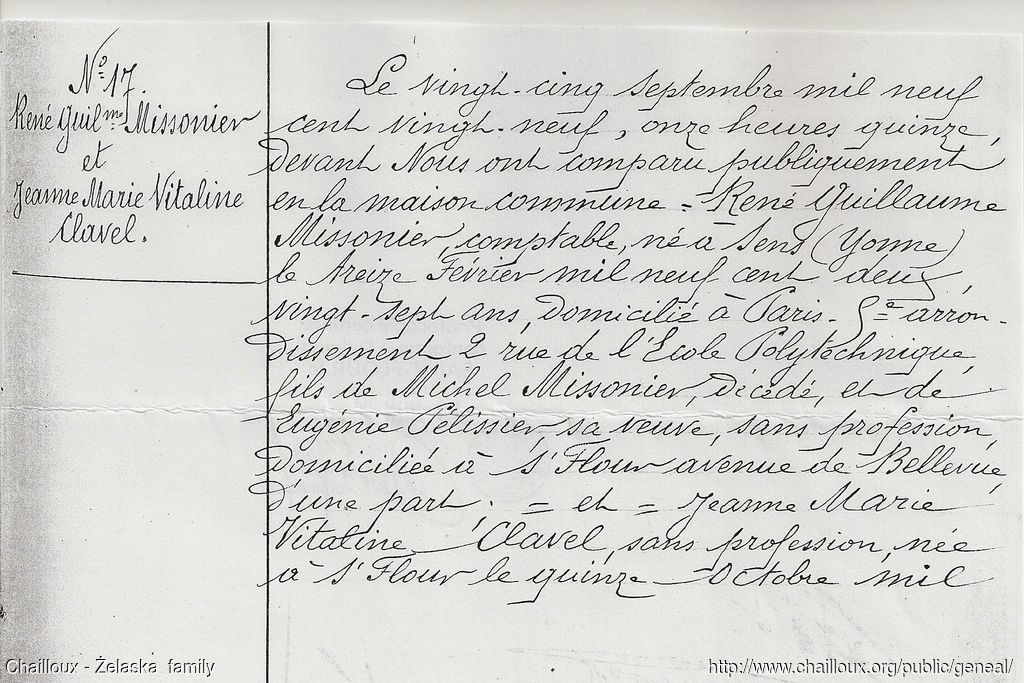 Nº 17.
René Guilme Missonier
et
Jeanne Marie Vitaline
Clavel.
Le vingt-cinq septembre mil neuf
cent vingt-neuf, onze heures quinze,
devant Nous ont comparu publiquement
en la maison commune = René Guillaume
Missonier, comptable, né à Sens (Yonne)
le treize Février mil neuf cent deux,
vingt-sept ans, domicilié à Paris - 5e arron-
dissement 2 rue de l'Ecole Polytechnique,
fils de Michel Missonier, décédé, et de
Eugénie Pélissier, sa veuve, sans profession,
domiciliée à St Flour avenue de Bellevue,
d'une part. = et = Jeanne Marie
Vitaline Clavel, sans profession, née
à St Flour le quinze Octobre mil
Chailloux - Żelaska family
http://www.chailloux.org/public/geneal/